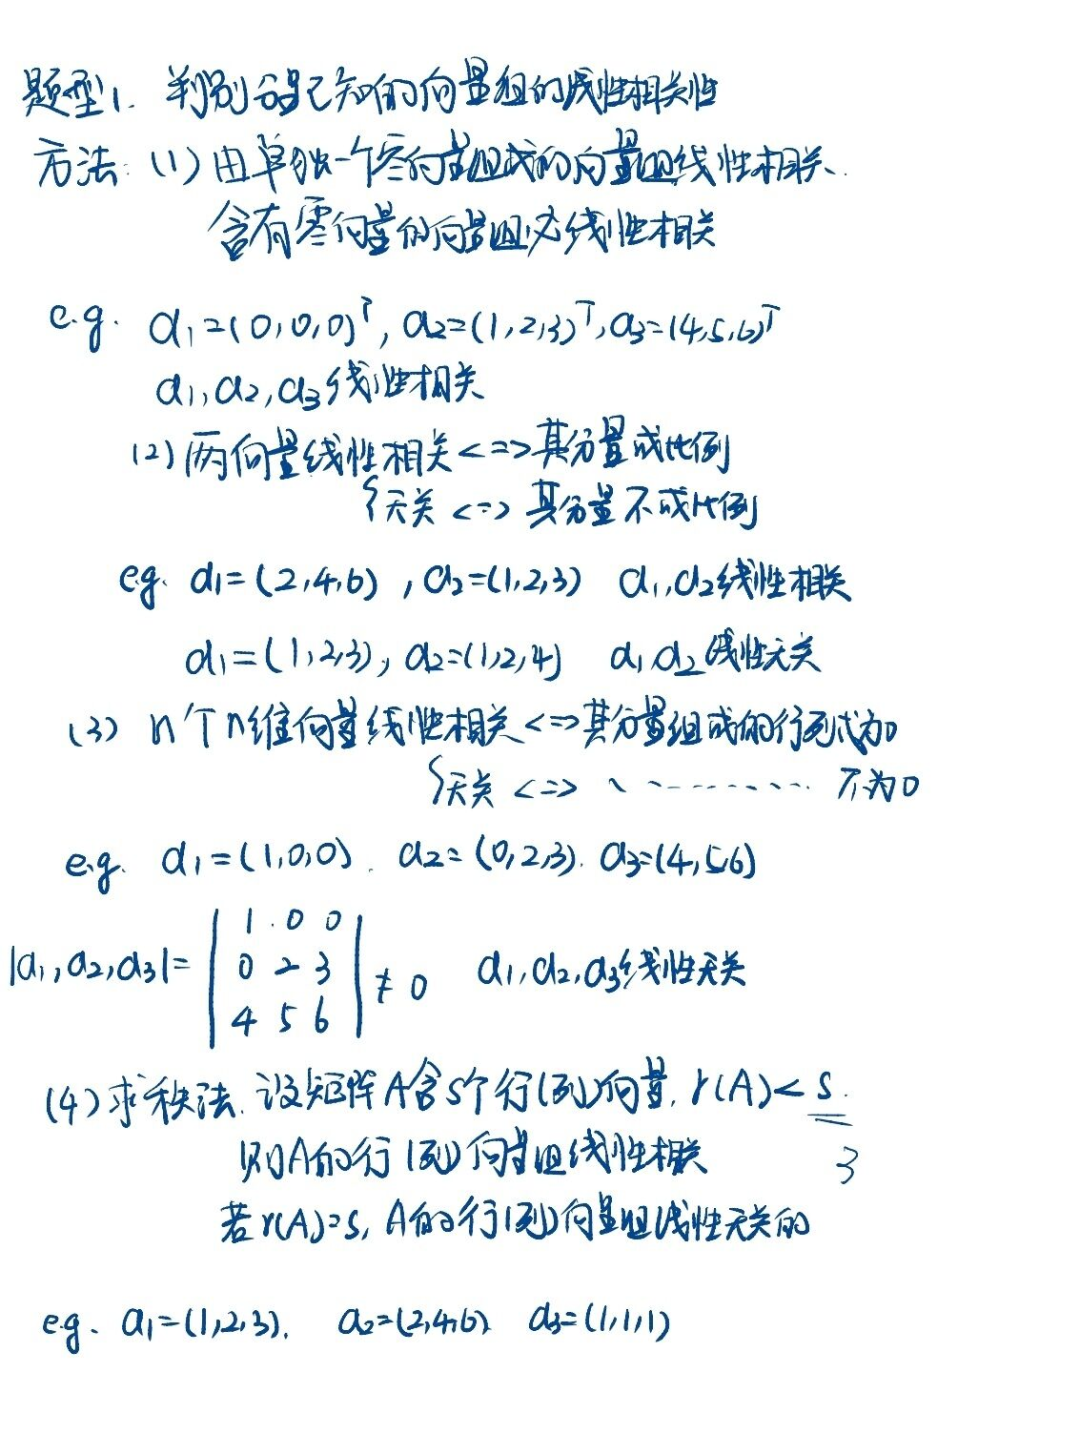 题型1. 判别分量已知的向量组的线性相关性
方法: (1) 由单独一个零向量组成的向量组线性相关.
含有零向量的向量组必线性相关
e.g. α₁=(0,0,0)ᵀ, α₂=(1,2,3)ᵀ, α₃=(4,5,6)ᵀ
α₁,α₂,α₃线性相关
(2) 两向量线性相关<=>其分量成比例
无关<=>其分量不成比例
e.g. α₁=(2,4,6), α₂=(1,2,3) α₁,α₂线性相关
α₁=(1,2,3), α₂=(1,2,4) α₁,α₂线性无关
(3) n个n维向量线性相关<=>其分量组成的行列式为0
无关<=> 、、-------... 不为0
e.g. α₁=(1,0,0). α₂=(0,2,3). α₃=(4,5,6)
|α₁,α₂,α₃|= | 1 0 0 |
| 0 2 3 | ≠0 α₁,α₂,α₃线性无关
| 4 5 6 |
(4) 求秩法. 设矩阵A含s个行(列)向量, r(A)<s.
则A的行(列)向量组线性相关 3
若r(A)=s, A的行(列)向量组线性无关的
e.g. α₁=(1,2,3), α₂=(2,4,6) α₃=(1,1,1)